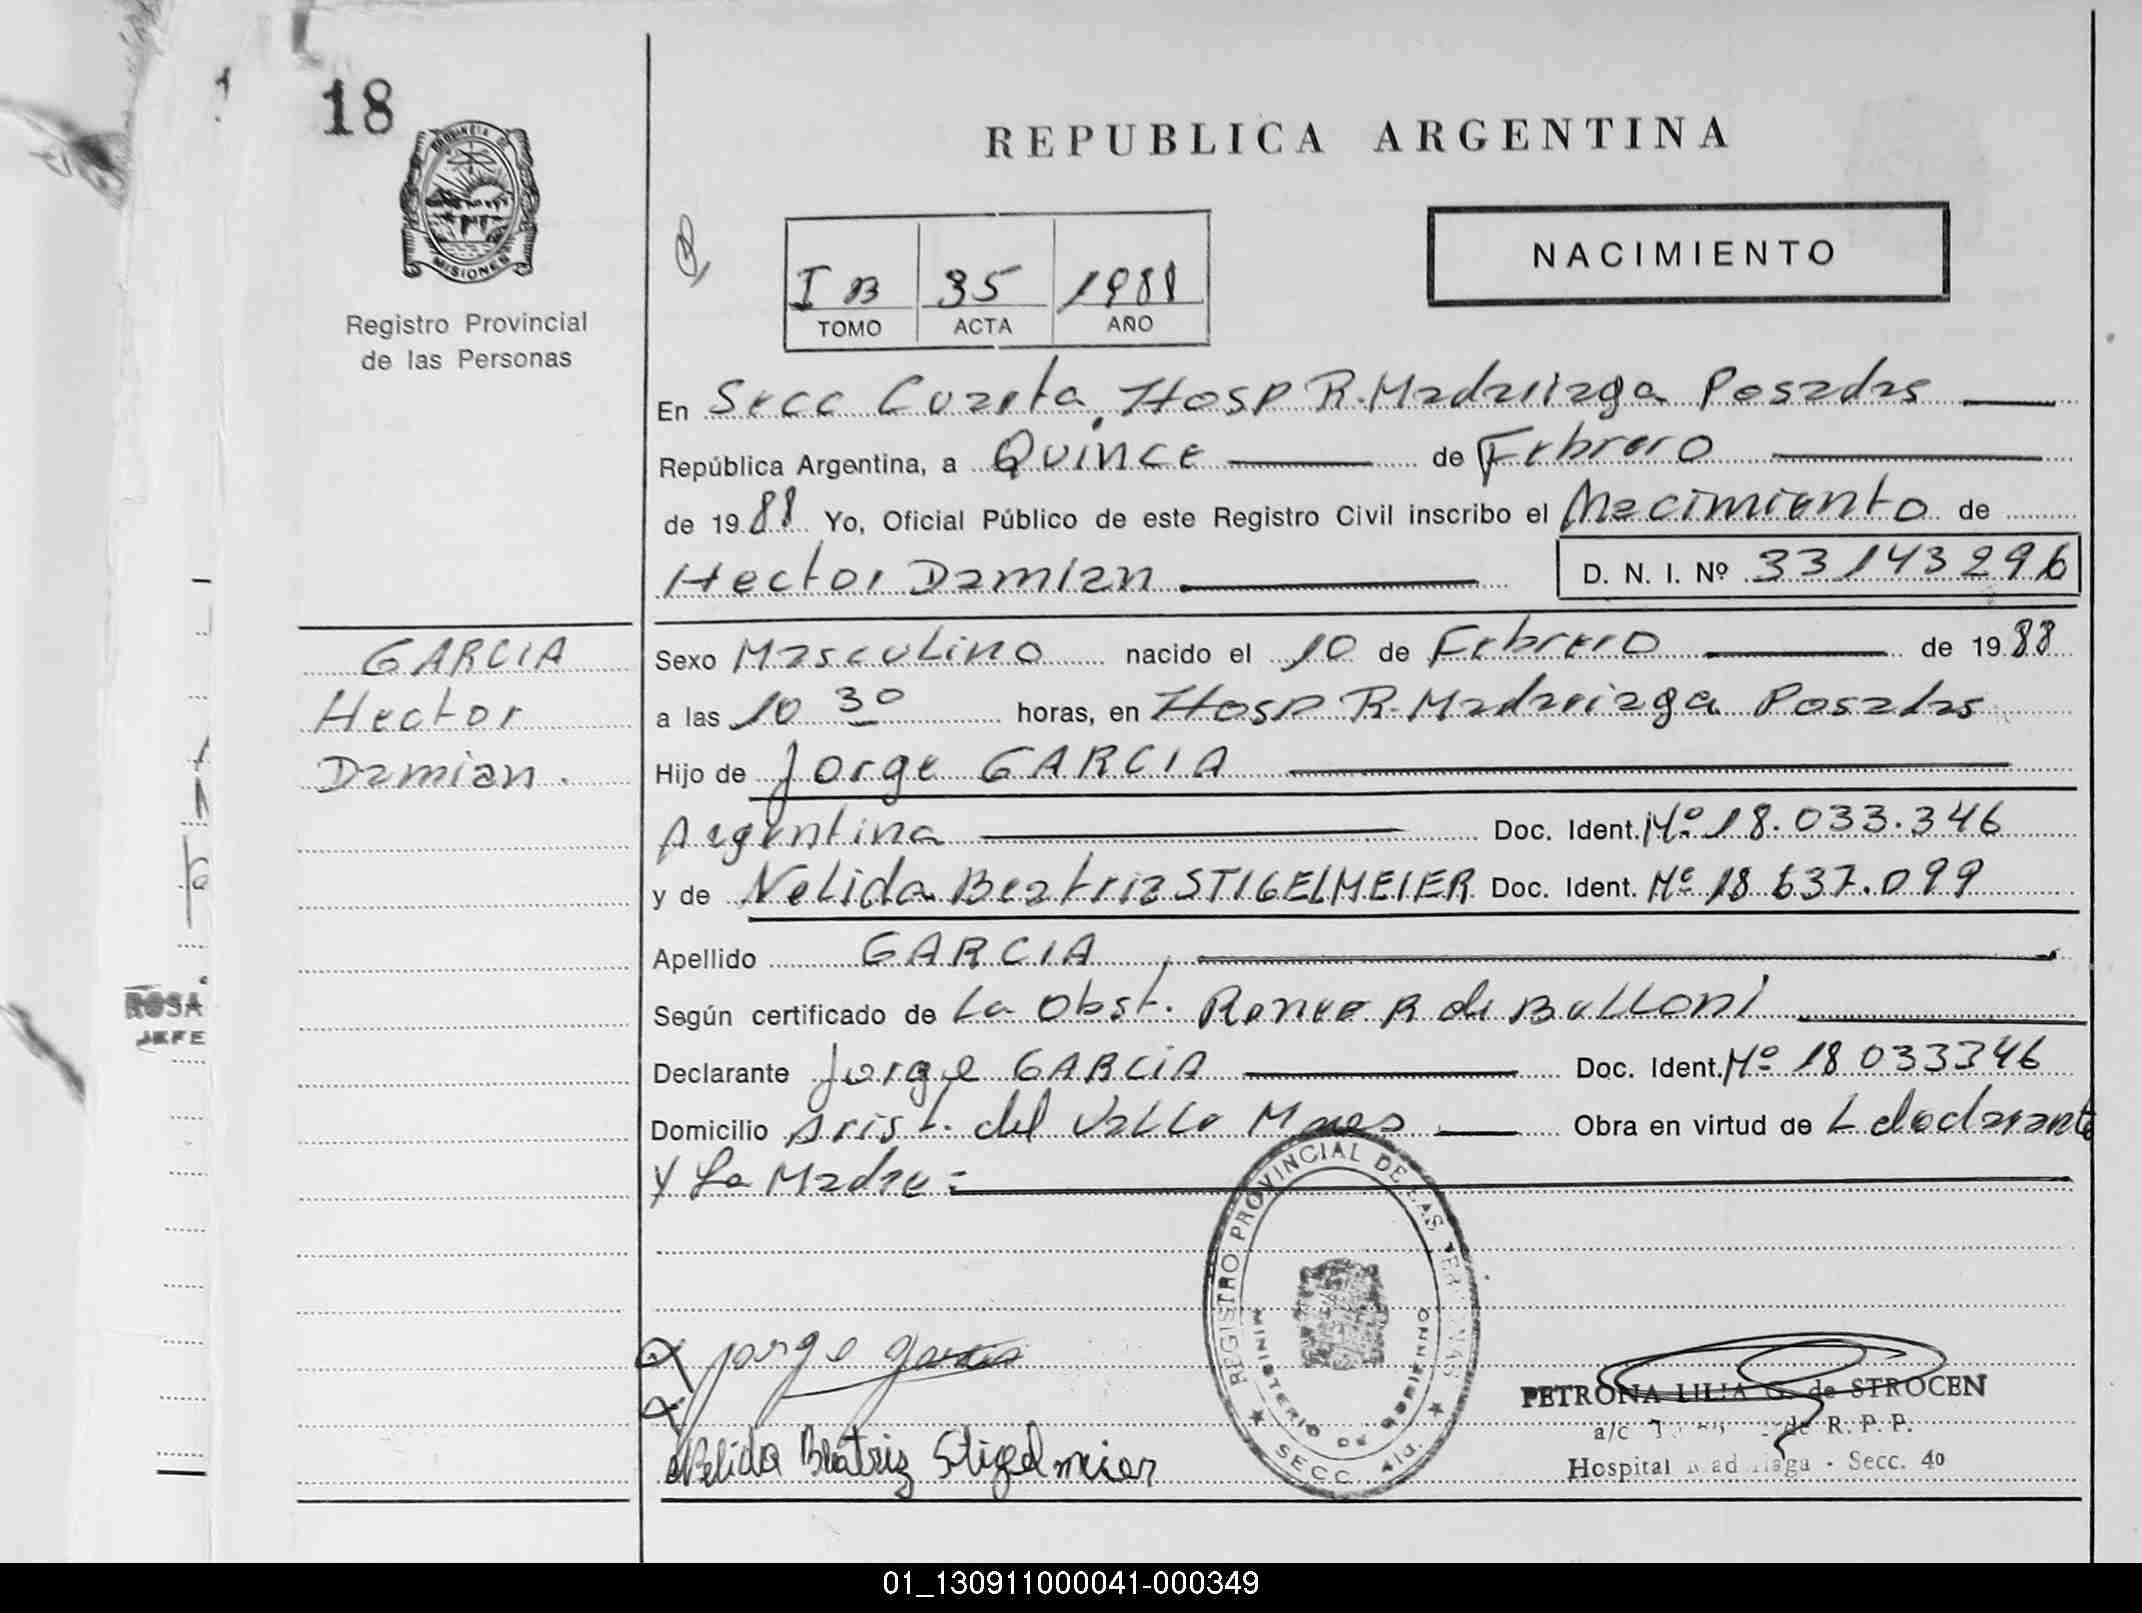 18
PROVINCIA DE
MISIONES
Registro Provincial
de las Personas
REPUBLICA ARGENTINA
NACIMIENTO
I B 35 1988
TOMO ACTA AÑO
En Secc Cuarta Hosp R. Madariaga Posadas
República Argentina, a Quince de Febrero
de 19 88 Yo, Oficial Público de este Registro Civil inscribo el Nacimiento de
Hector Damian D. N. I. Nº 33143296
GARCIA
Hector
Damian.
Sexo Masculino nacido el 10 de Febrero de 19 88
a las 10 30 horas, en Hosp R. Madariaga Posadas
Hijo de Jorge GARCIA
Argentina Doc. Ident. Nº 18.033.346
y de Nelida Beatriz STIGELMEIER Doc. Ident. Nº 18 637.099
Apellido GARCIA
Según certificado de La Obst. R de Balloni
Declarante Jorge GARCIA Doc. Ident. Nº 18 033346
Domicilio Arist. del Valle Mnes Obra en virtud de L declarante
Y La Madre =
ROSA
JEFE
REGISTRO PROVINCIAL DE LAS PERSONAS
MINISTERIO DE GOBIERNO
SECC. 4ta.
Jorge Garcia
Nelida Beatriz Stigelmeier
PETRONA LILIA G. de STROCEN
a/c de R. P. P.
Hospital Madariaga - Secc. 4o
01_130911000041-000349